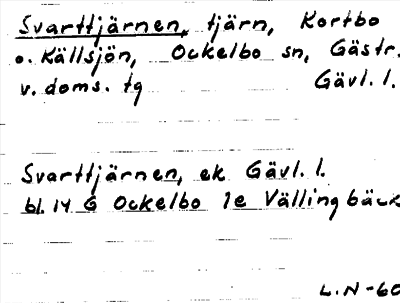 Svarttjärnen, tjärn, Kortbo
o. Källsjön, Ockelbo sn, Gästr.
v. doms. tg Gävl. l.
Svarttjärnen, ek Gävl. l.
bl. 14 G Ockelbo 1e Vällingbäck
L.N-60